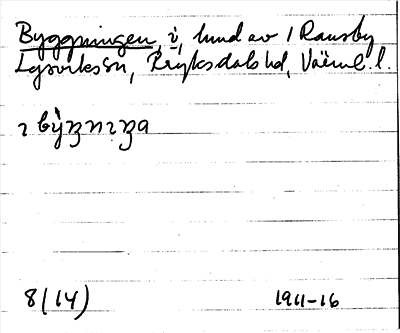 Byggningen, i, hmd av 1 Ransby
Lysviks sn, Fryksdals hd, Värml. l.
ı bỳʒnıʒa
8(14) 1911-16